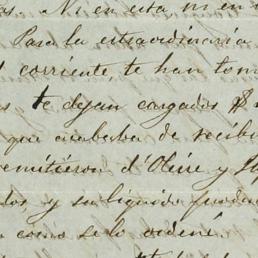 as. Ni en esta ni en
Para la extraordinaria
corriente te han tom
te dejan cargados $
que acababa de recibi
remitieron d'Olire y
y su liquido queda
como se lo ordené